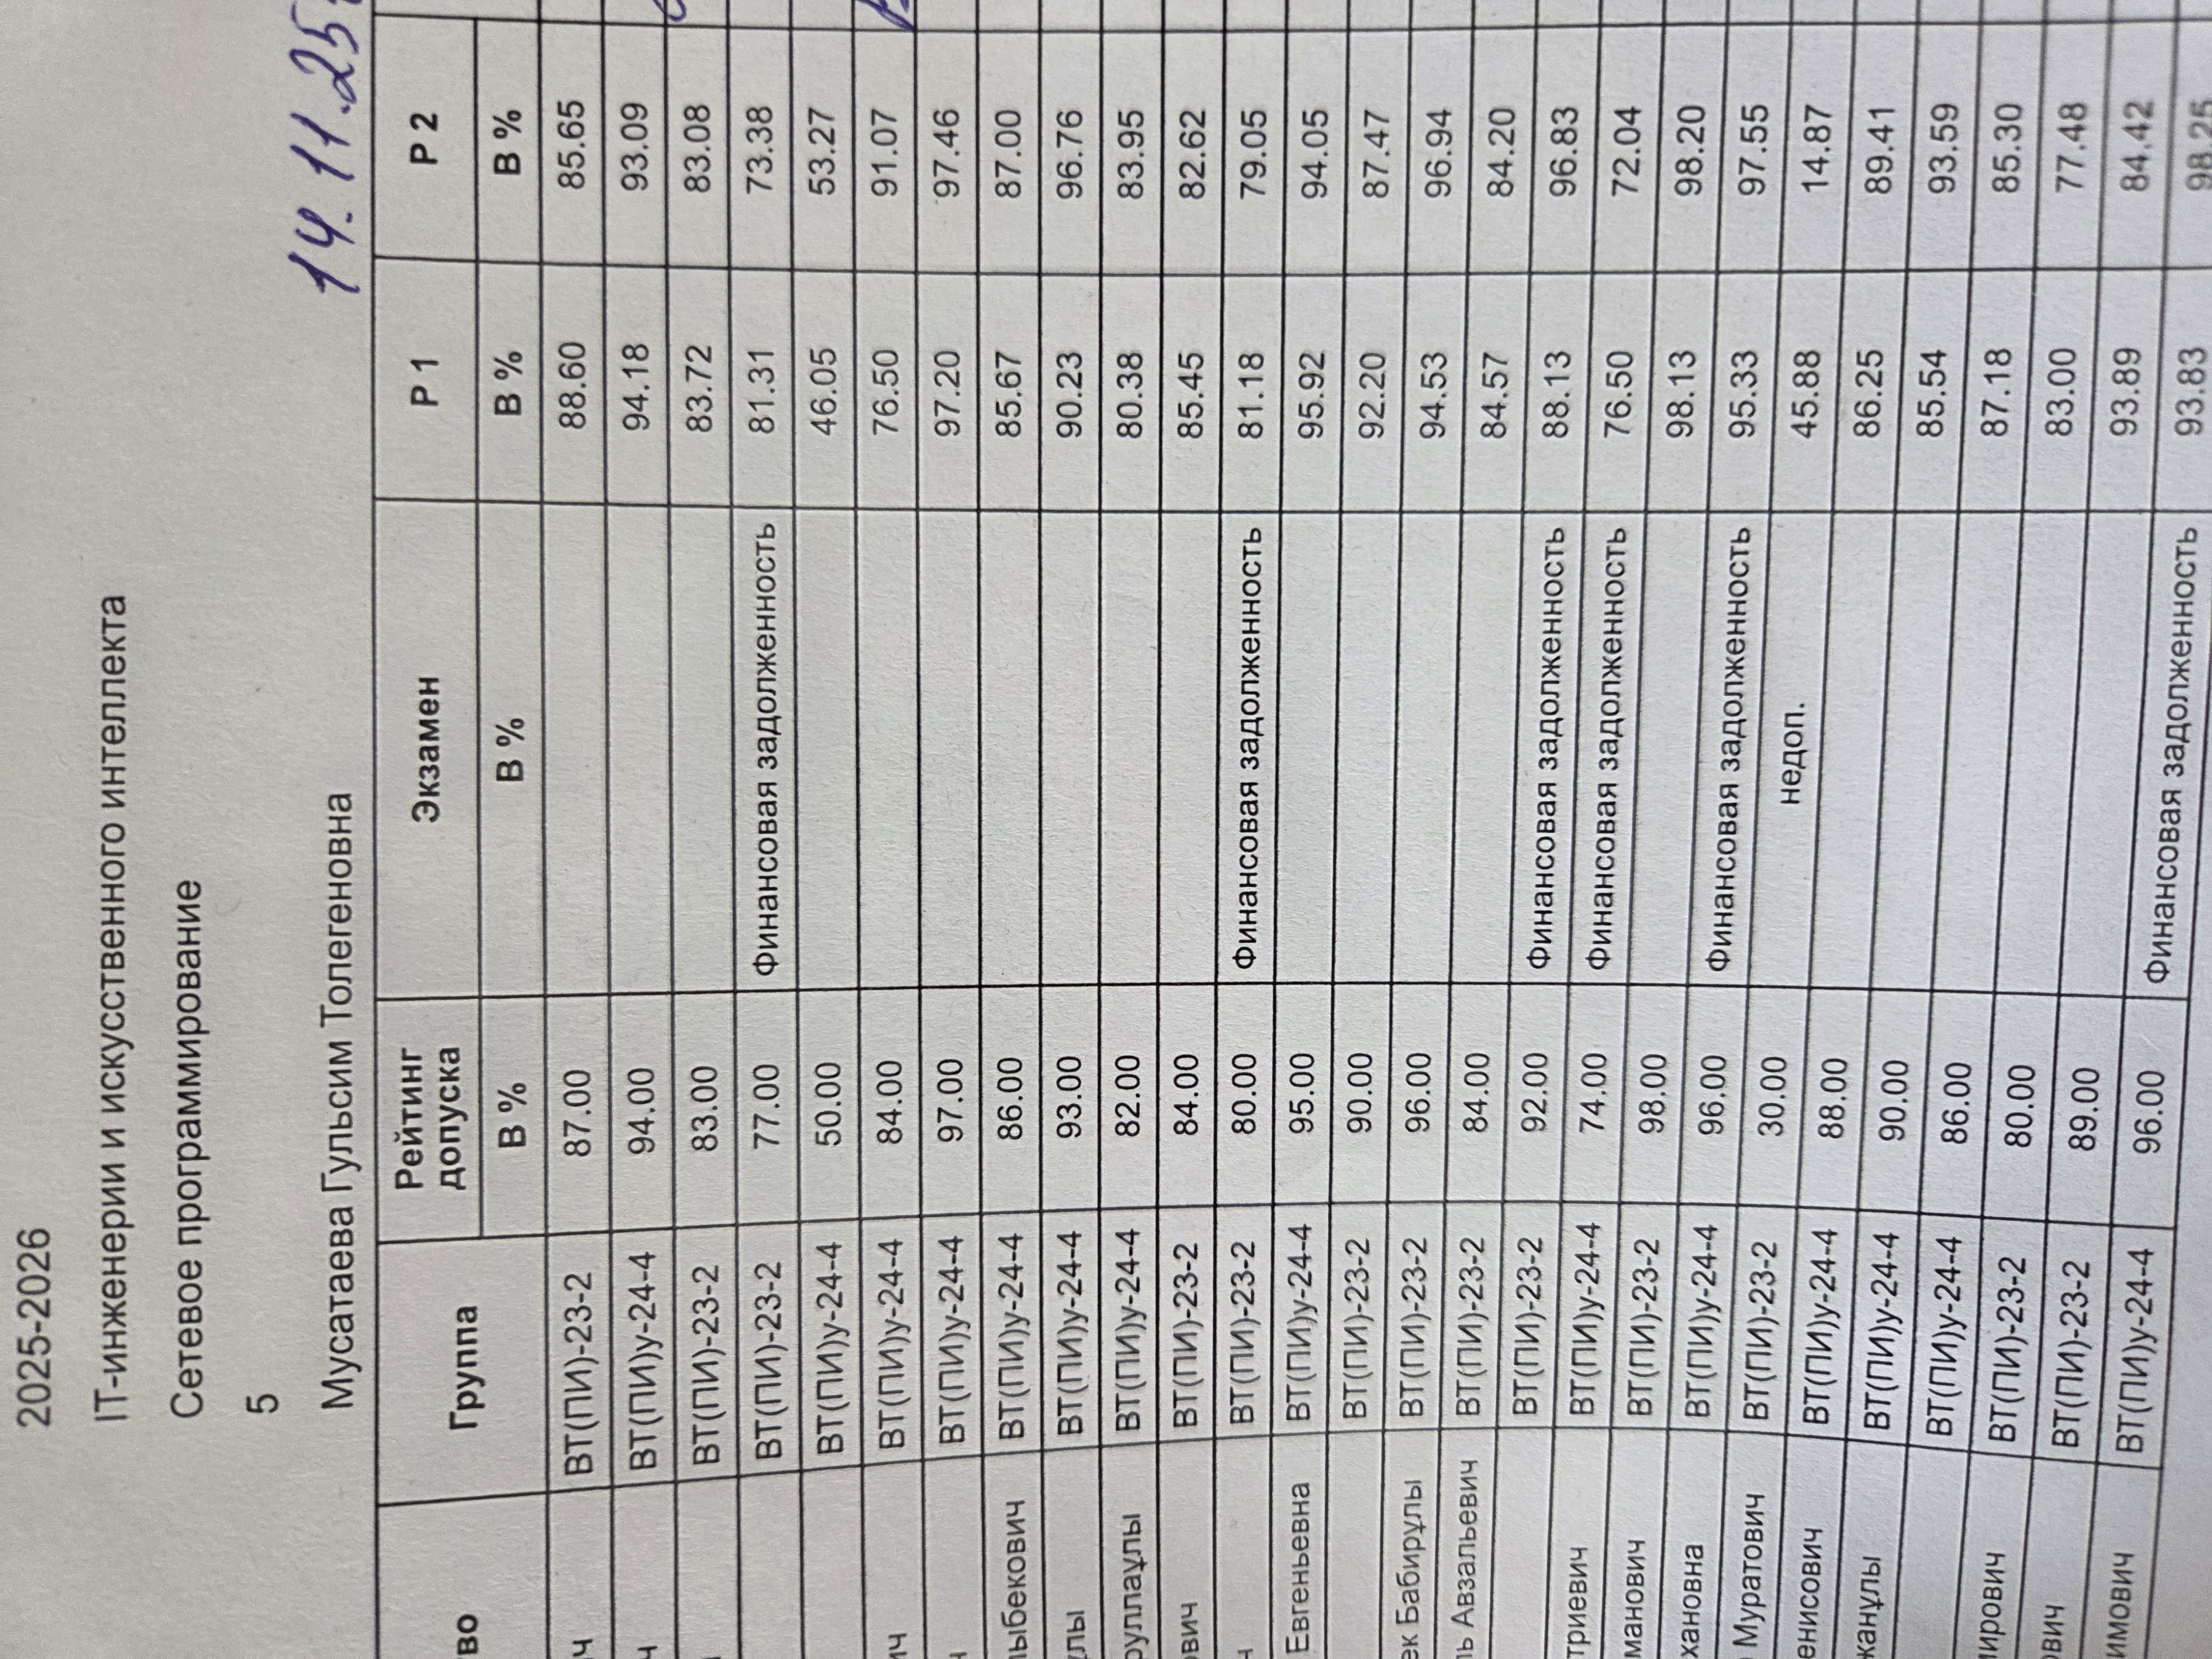 2025-2026
IT-инженерии и искусственного интеллекта
Сетевое программирование
5
14.11.25
Мусатаева Гульсим Толегеновна
во Группа Рейтинг допуска Экзамен Р 1 Р 2
В % В % В % В %
ч ВТ(ПИ)-23-2 87.00 88.60 85.65
ч ВТ(ПИ)у-24-4 94.00 94.18 93.09
ВТ(ПИ)-23-2 83.00 83.72 83.08
ВТ(ПИ)-23-2 77.00 Финансовая задолженность 81.31 73.38
ВТ(ПИ)у-24-4 50.00 46.05 53.27
ич ВТ(ПИ)у-24-4 84.00 76.50 91.07
ч ВТ(ПИ)у-24-4 97.00 97.20 97.46
лыбекович ВТ(ПИ)у-24-4 86.00 85.67 87.00
улы ВТ(ПИ)у-24-4 93.00 90.23 96.76
руллаұлы ВТ(ПИ)у-24-4 82.00 80.38 83.95
ович ВТ(ПИ)-23-2 84.00 85.45 82.62
ч ВТ(ПИ)-23-2 80.00 Финансовая задолженность 81.18 79.05
Евгеньевна ВТ(ПИ)у-24-4 95.00 95.92 94.05
ВТ(ПИ)-23-2 90.00 92.20 87.47
ек Бабирұлы ВТ(ПИ)-23-2 96.00 94.53 96.94
ль Авзальевич ВТ(ПИ)-23-2 84.00 84.57 84.20
ВТ(ПИ)-23-2 92.00 Финансовая задолженность 88.13 96.83
триевич ВТ(ПИ)у-24-4 74.00 Финансовая задолженность 76.50 72.04
манович ВТ(ПИ)-23-2 98.00 98.13 98.20
хановна ВТ(ПИ)у-24-4 96.00 Финансовая задолженность 95.33 97.55
Муратович ВТ(ПИ)-23-2 30.00 недоп. 45.88 14.87
енисович ВТ(ПИ)у-24-4 88.00 86.25 89.41
жанұлы ВТ(ПИ)у-24-4 90.00 85.54 93.59
ВТ(ПИ)у-24-4 86.00 87.18 85.30
мирович ВТ(ПИ)-23-2 80.00 83.00 77.48
ович ВТ(ПИ)-23-2 89.00 93.89 84.42
имович ВТ(ПИ)у-24-4 96.00 Финансовая задолженность 93.83 98.25